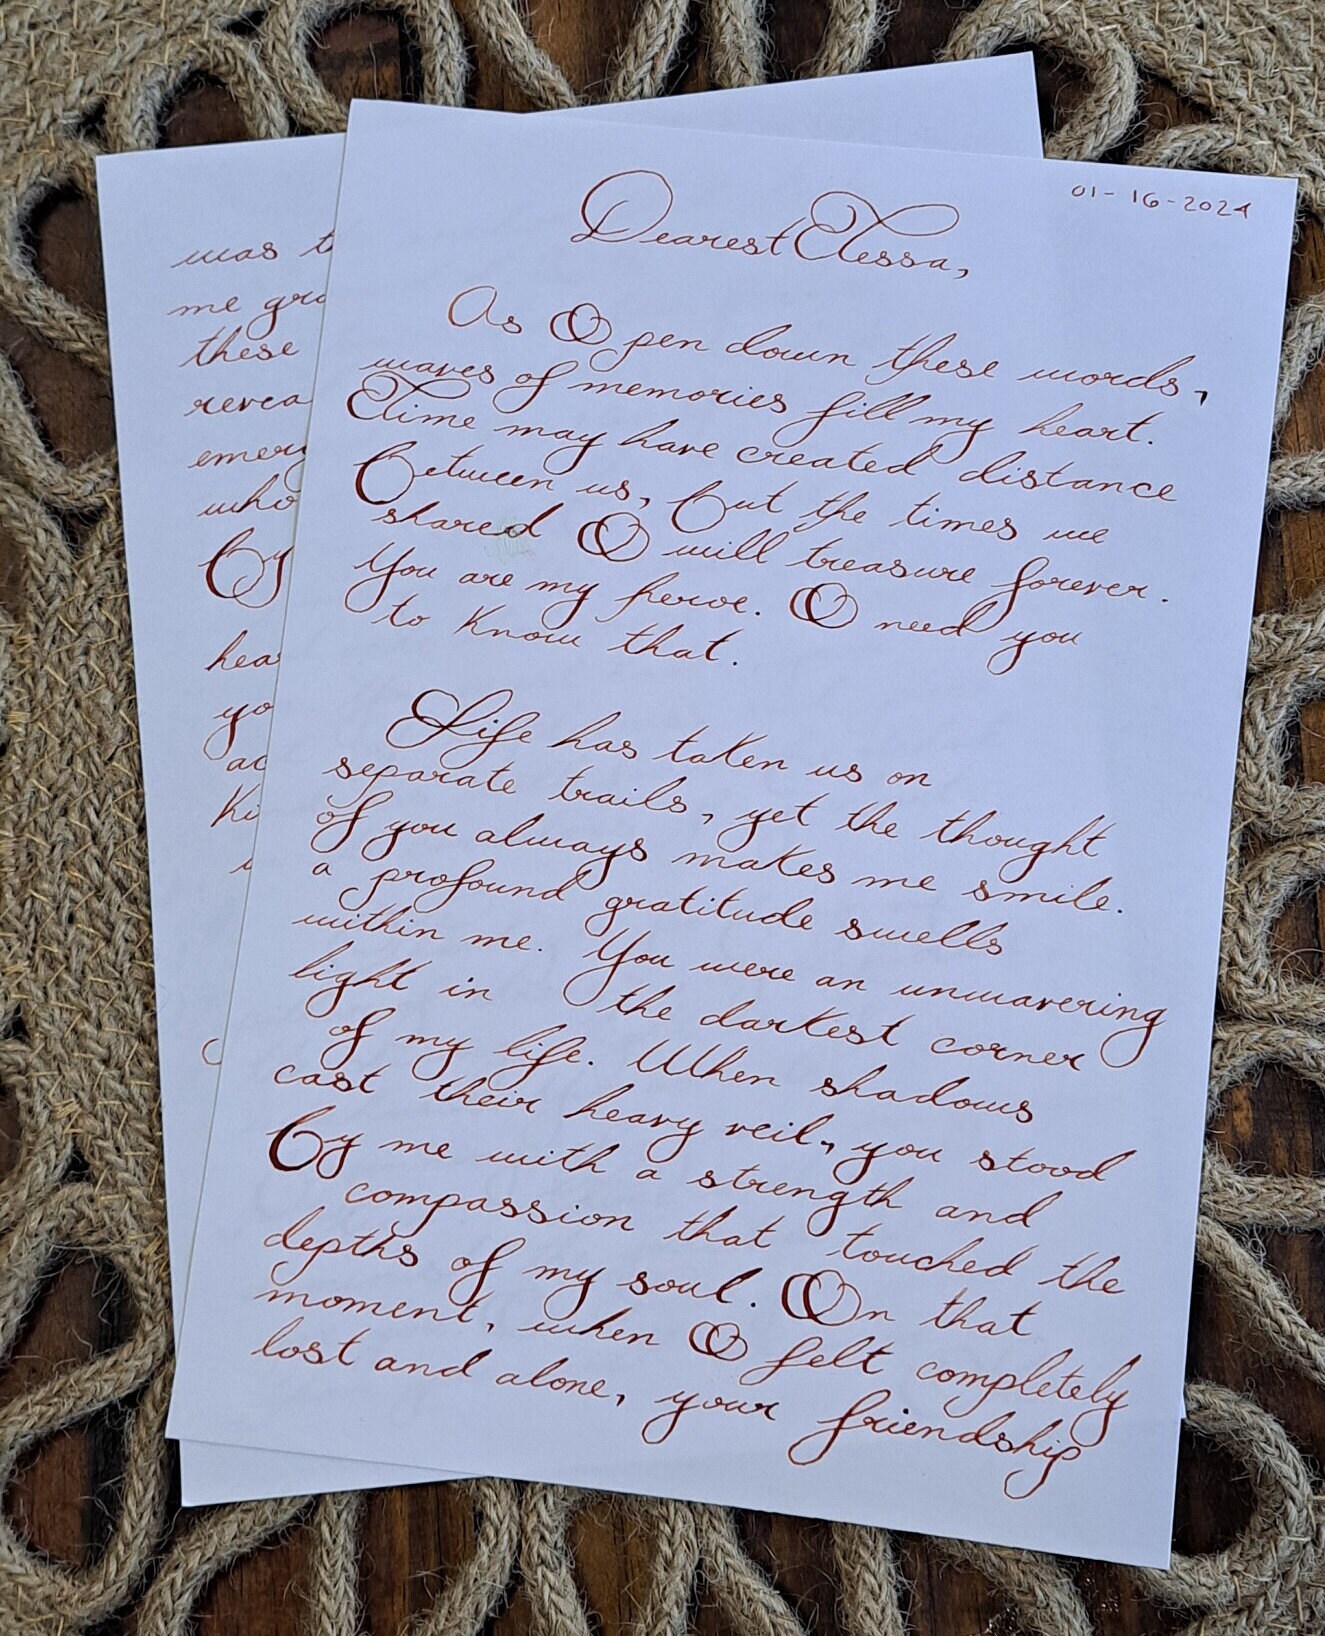 01-16-2024
Dearest Tessa,
As I pen down these words,
waves of memories fill my heart.
Time may have created distance
between us, but the times we
shared I will treasure forever.
You are my heroe. I need you
to know that.
Life has taken us on
separate trails, yet the thought
of you always makes me smile.
a profound gratitude swells
within me. You were an unwavering
light in the darkest corner
of my life. When shadows
cast their heavy veil, you stood
by me with a strength and
compassion that touched the
depths of my soul. In that
moment, when I felt completely
lost and alone, your friendship
was t
me gra
these
revea
emerg
who
by
hea
yo
ac
Ki